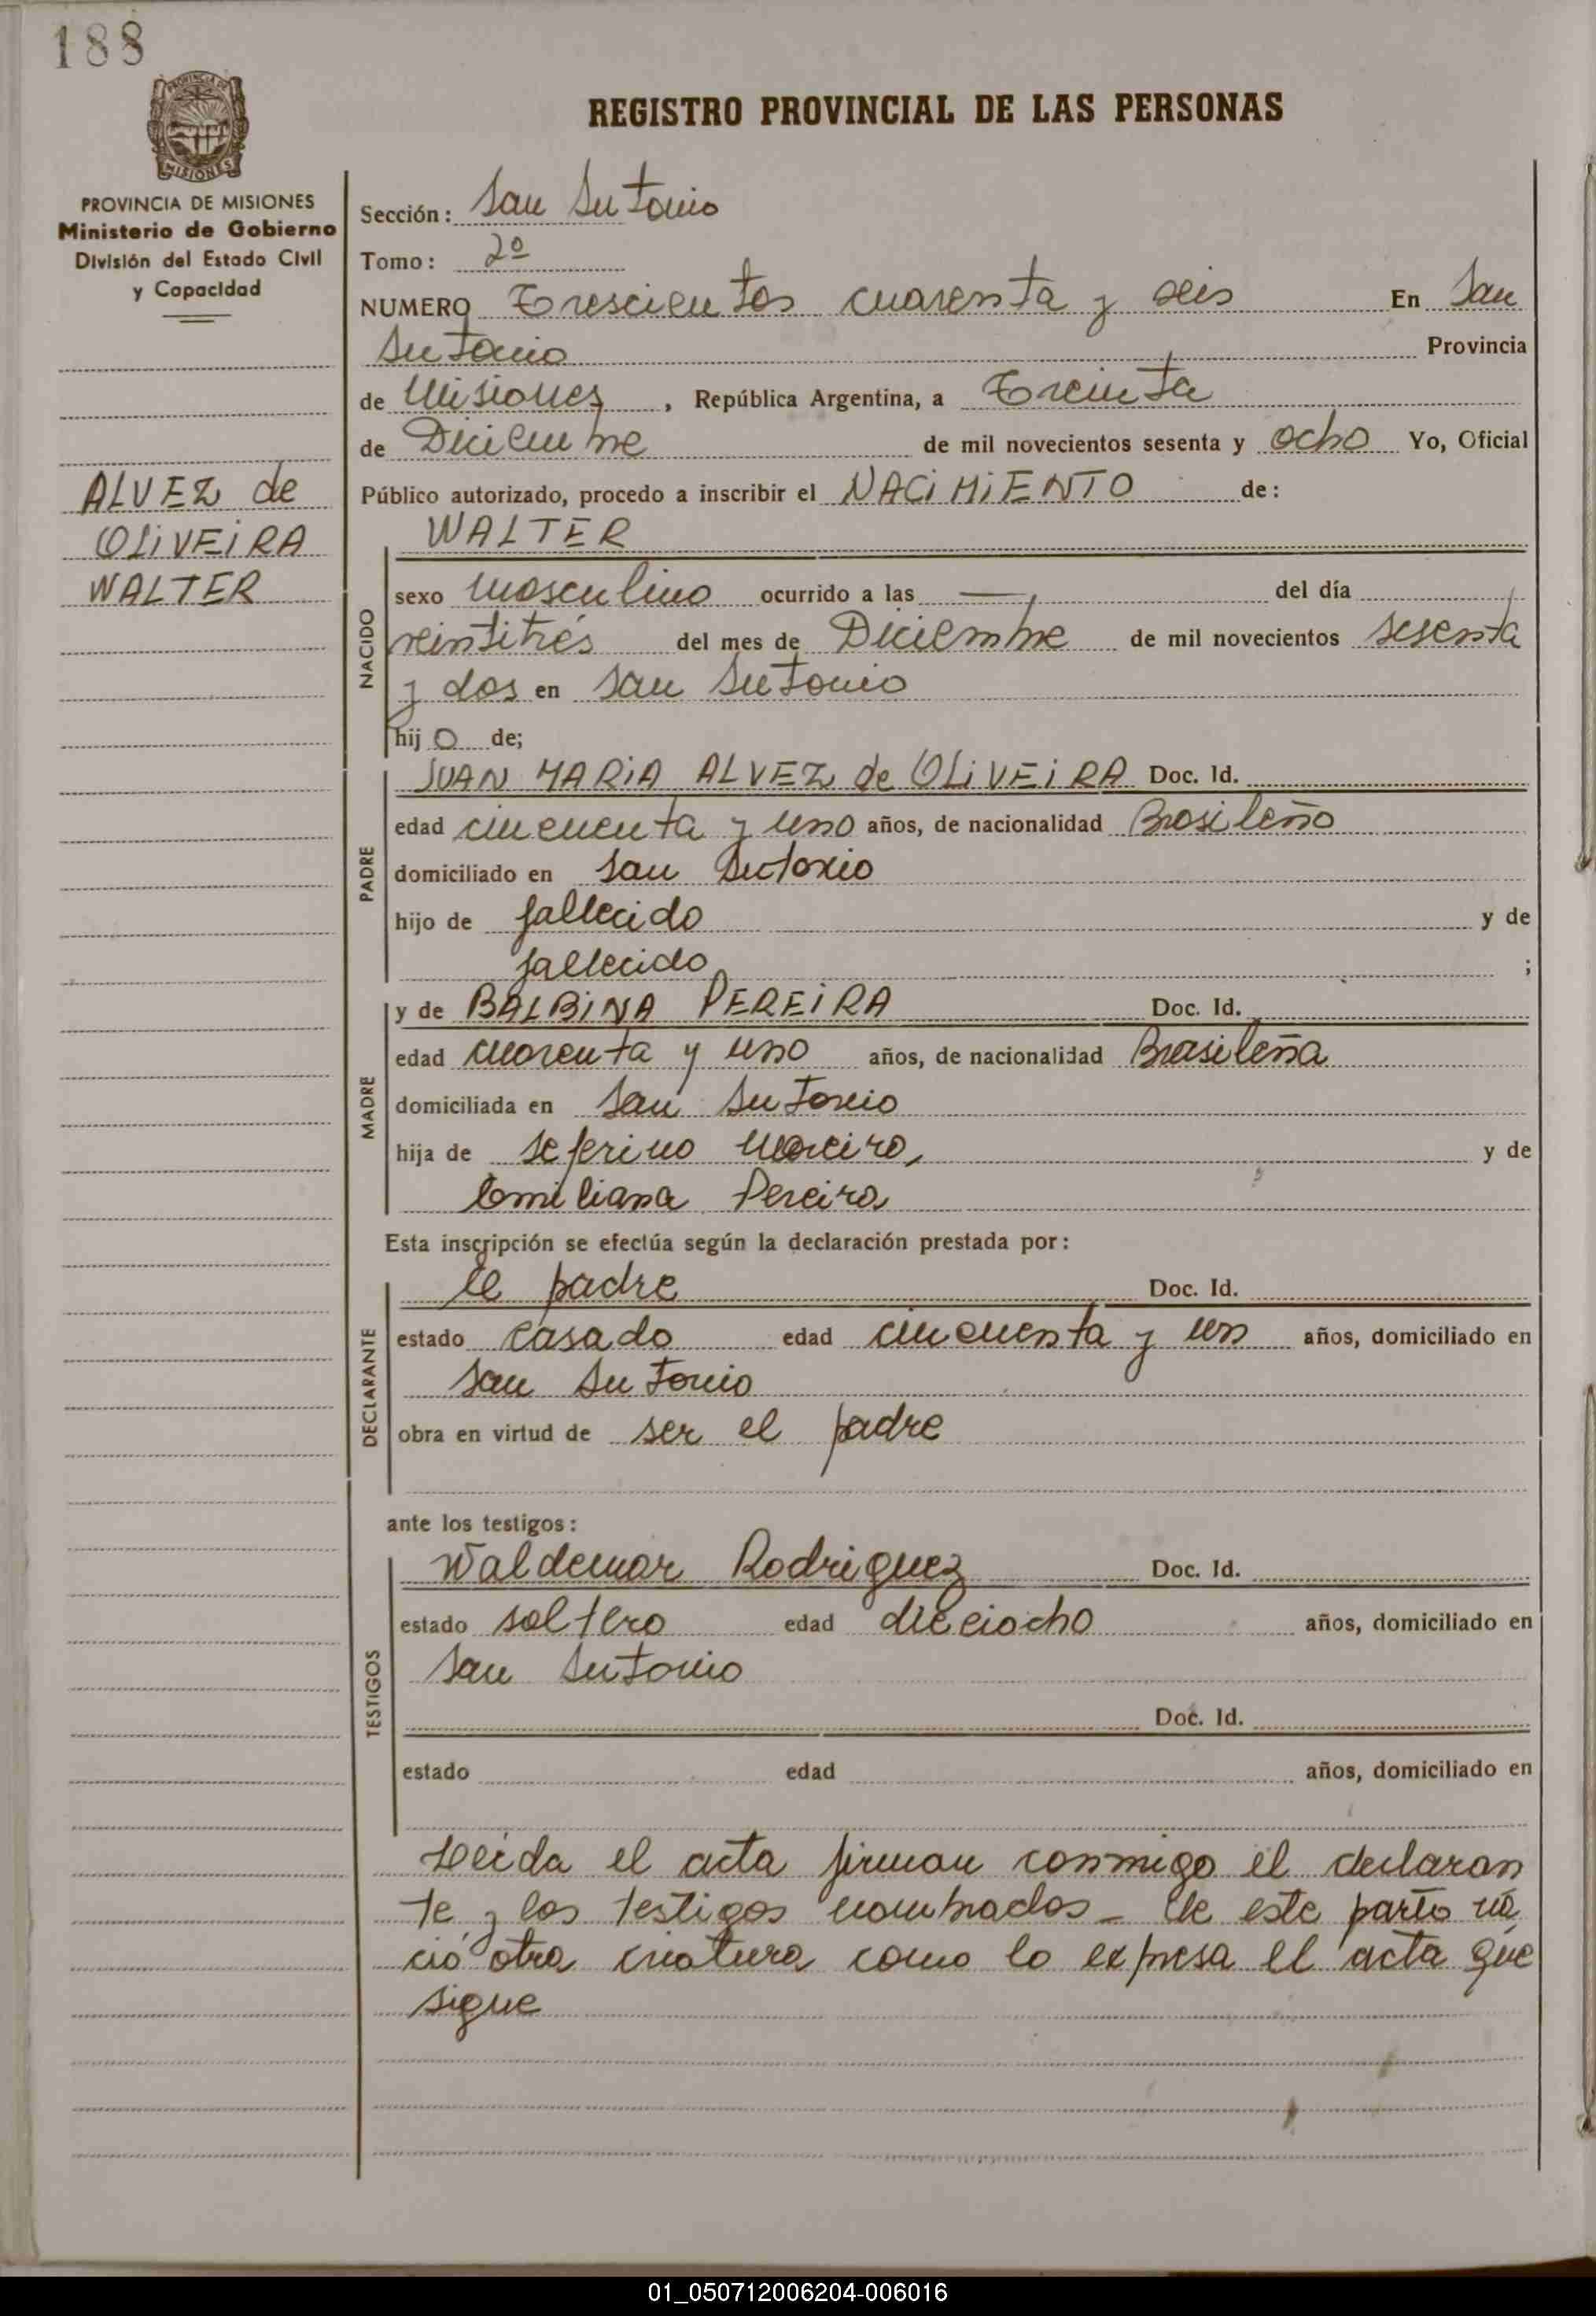 188
PROVINCIA DE
MISIONES
PROVINCIA DE MISIONES
Ministerio de Gobierno
División del Estado Civil
y Capacidad
ALVEZ de
OLiVEiRA
WALTER
REGISTRO PROVINCIAL DE LAS PERSONAS
Sección: San Antonio
Tomo: 2º
NUMERO Trescientos cuarenta y seis En San
Antonio Provincia
de Misiones, República Argentina, a Treinta
de Diciembre de mil novecientos sesenta y ocho Yo, Oficial
Público autorizado, procedo a inscribir el NACiMiENTO de:
WALTER
NACIDO
sexo masculino ocurrido a las — del día
veintitrés del mes de Diciembre de mil novecientos sesenta
y dos en San Antonio
hij o de;
PADRE
JUAN MARiA ALVEZ de OLiVEiRA Doc. Id.
edad cincuenta y uno años, de nacionalidad Brasileño
domiciliado en San Antonio
hijo de fallecido y de
fallecido ;
MADRE
y de BALBiNA PEREiRA Doc. Id.
edad cuarenta y uno años, de nacionalidad Brasileña
domiciliada en San Antonio
hija de Seferino y de
Emiliana Pereira
Esta inscripción se efectúa según la declaración prestada por:
DECLARANTE
el padre Doc. Id.
estado casado edad cincuenta y un años, domiciliado en
San Antonio
obra en virtud de ser el padre
ante los testigos:
TESTIGOS
Waldemar Rodriguez Doc. Id.
estado soltero edad dieciocho años, domiciliado en
San Antonio
Doc. Id.
estado edad años, domiciliado en
Leida el acta firman conmigo el declaran
te y los testigos nombrados - De este parto na
ció otra criatura como lo expresa el acta que
sigue
01_050712006204-006016